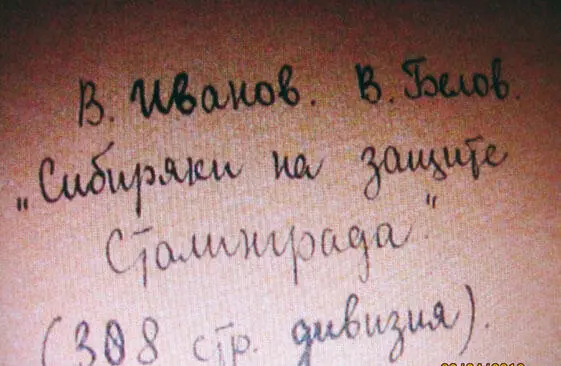 В. Иванов. В. Белов.
„Сибиряки на защите
Сталинграда."
(308 стр. дивизия).